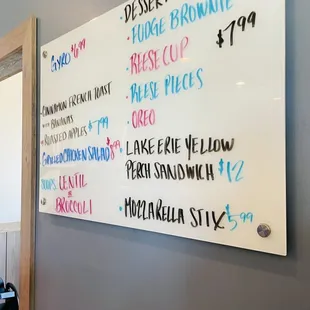 GYRO $6.99
CINNAMON FRENCH TOAST
WITH BANANAS
OR ROASTED APPLES $7.99
GRILLED CHICKEN SALAD $8.99
SOUPS: LENTIL
&
BROCCOLI
· DESSERT
· FUDGE BROWNIE
$7.99
· REESE CUP
· REESE PIECES
· OREO
LAKE ERIE YELLOW
PERCH SANDWICH $12
· MOZZARELLA STIX $5.99